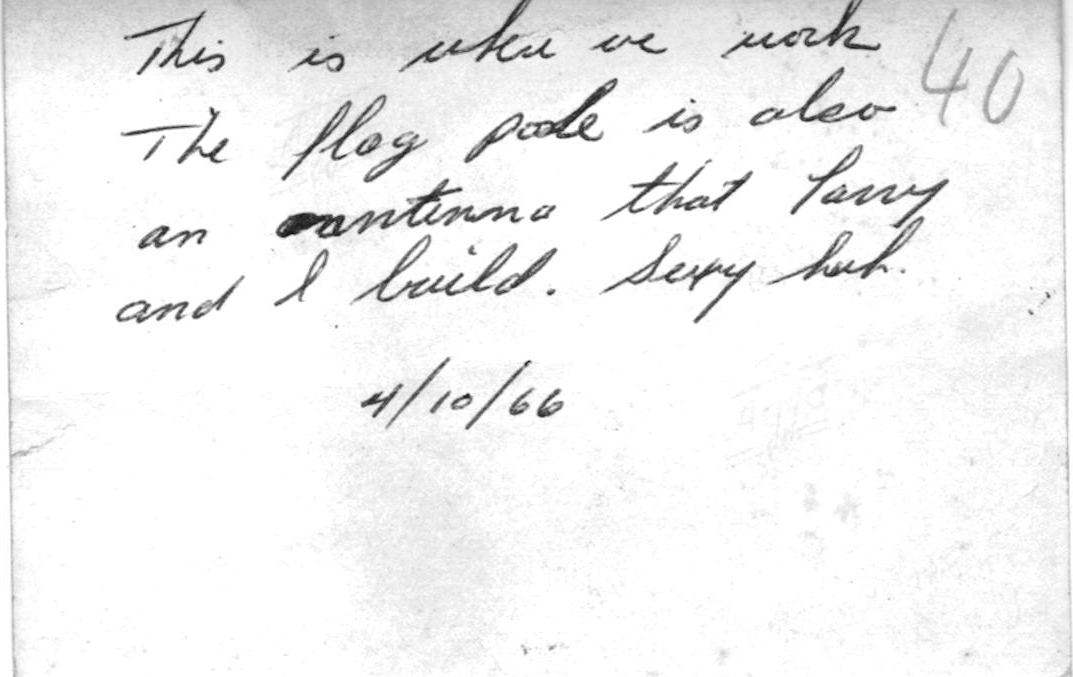 This is when we work 40
The flag pole is also
an antenna that Larry
and I build. Sexy huh.
4/10/66